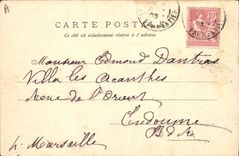 A
CARTE POSTALE
Ce côté est exclusivement réservé à l'adresse.
Monsieur Edmond Dantras
Villa les Acanthes
Avenue de l'Orient
Endoume
B.d.R
p. Marseille